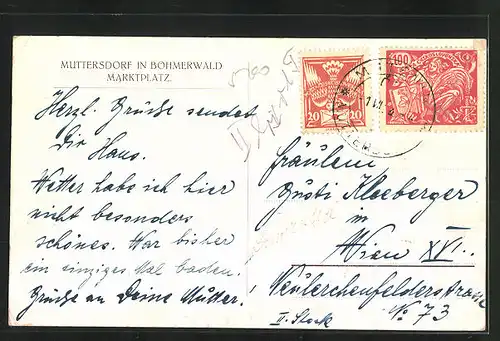 MUTTERSDORF IN BÖHMERWALD
MARKTPLATZ.
Herzl. Grüße sendet
Dir Hans.
Wetter habe ich hier
nicht besonders
schönes. War bisher
ein einziges Mal baden.
Grüße an Deine Mutter!
20 20
100
Fräulein
Gusti Kloeberger
in
Wien XVI.
Neulerchenfelderstrasse
No 73
II. Stock